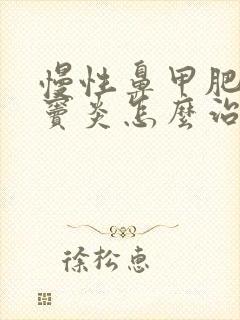 慢性鼻甲肥
竇炎怎麼治
徐松惠